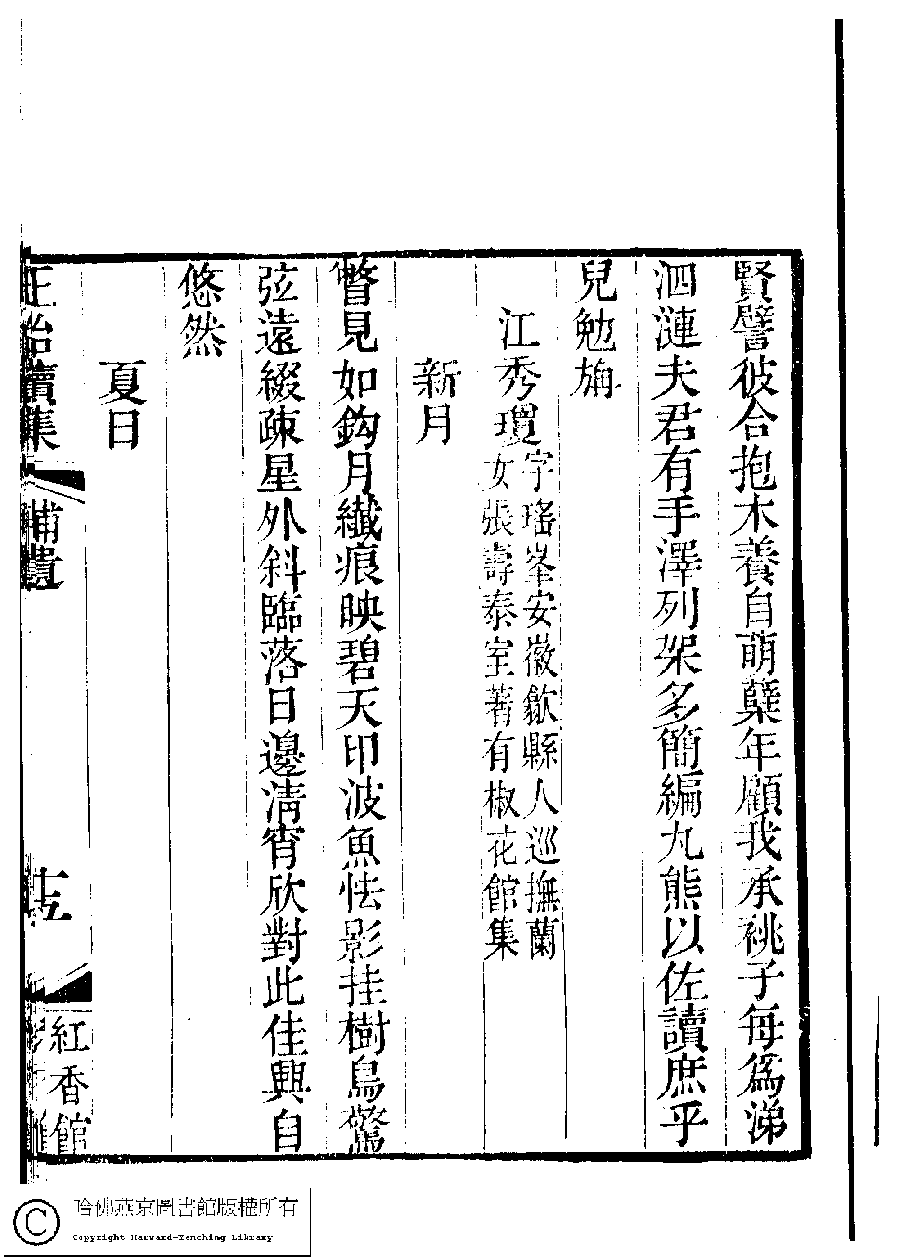 賢譬彼合抱木養自萌蘖年顧我承祧子每爲涕
泗漣夫君有手澤列架多簡編丸熊以佐讀庶乎
兒勉旃
江秀瓊
字瑤峯安徽歙縣人巡撫蘭
女張壽泰室著有椒花館集
新月
瞥見如鈎月纖痕映碧天印波魚怯影挂樹鳥驚
弦遠綴疎星外斜臨落日邊淸宵欣對此佳興自
悠然
夏日
正始續集
補遺
十五
紅香館
哈佛燕京圖書館版權所有
Copyright Harvard-Yenching Library